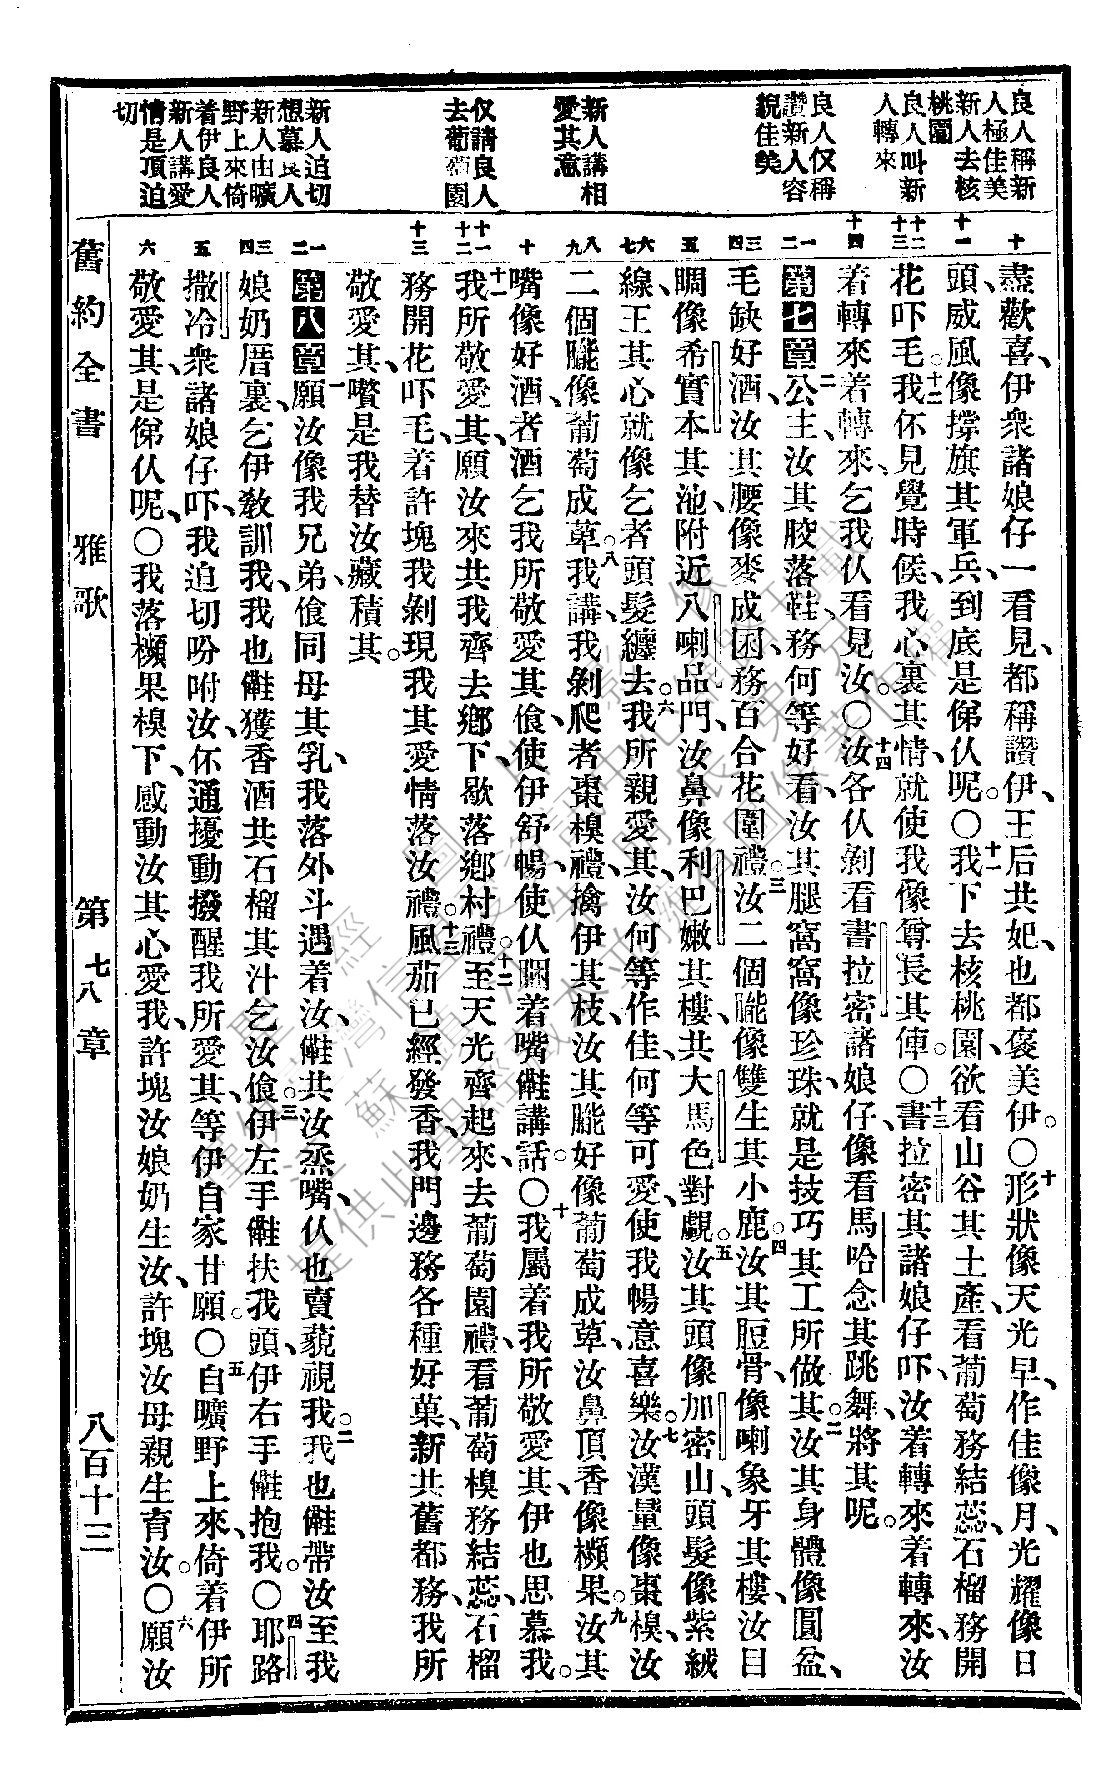 良人稱新
人極佳美
新人去核
桃園
良人叫新
人轉來
良人仅稱
讚新人容
貌佳美
新人講相
愛其意
仅請良人
去葡萄園
新人迫切
想慕良人
新人由曠
野上來倚
着伊良人
新人講愛
情是頂迫
切
十
十一
十二
十三
十四
一
二
三
四
五
六
七
八
九
十
十一
十二
十三
一
二
三
四
五
六
盡歡喜、伊衆諸娘仔一看見、都稱讚伊、王后共妃、也都褒美伊。〇十形狀像天光早、作佳像月、光耀像日
頭、威風像撐旗其軍兵、到底是俤仈呢。〇十一我下去核桃園、欲看山谷其土產、看葡萄務結蕊、石榴務開
花吓毛。十二我伓見覺時候、我心裏其情、就使我像尊長其俥。〇十三書拉密其諸娘仔吓、汝着轉來、着轉來、汝
着轉來、着轉來、乞我仈看見汝。〇十四汝各仈剝看書拉密諸娘仔、像看馬哈念其跳舞將其呢。
第七章公主、汝其骹落鞋、務何等好看、汝其腿窩窩像珍珠、就是技巧其工所做其。二汝其身體像圓盆、
毛缺好酒、汝其腰像麥成囷、務百合花圍禮。三汝二個䏰像雙生其小鹿。四汝其脰骨、像喇象牙其樓、汝目
睭像希實本其池、附近八喇品門、汝鼻像利巴嫩其樓、共大馬色對覷。五汝其頭像加密山、頭髮像紫絨
線、王其心就像乞者頭髮纏去。六我所親愛其、汝何等作佳、何等可愛、使我暢意喜樂。七汝漢量像棗模、汝
二個䏰像葡萄成䔟。八我講、我剝爬者棗模禮、擒伊其枝、汝其䏰好像葡萄成䔟、汝鼻頂香像檨果。九汝其
嘴像好酒、者酒乞我所敬愛其儉、使伊舒暢、使仈𦣞着嘴𠆧講話。〇十我屬着我所敬愛其、伊也思慕我。
十一我所敬愛其、願汝來共我齊去鄉下、歇落鄉村禮。十二至天光齊起來、去葡萄園禮、看葡萄模務結蕊、石榴
務開花吓毛、着許塊我剝現我其愛情落汝禮。十三風茄已經發香、我門邊務各種好菓、新共舊都務、我所
敬愛其、囋是我替汝藏積其。
第八章一願汝像我兄弟、儉同母其乳、我落外斗遇着汝、𠆧共汝烝嘴、仈也賣藐視我。二我也𠆧帶汝至我
娘奶厝裏、乞伊教訓我、我也𠆧獲香酒共石榴其汁乞汝儉。三伊左手𠆧扶我頭、伊右手𠆧抱我。〇四耶路
撒冷衆諸娘仔吓、我迫切吩咐汝、伓通擾動撥醒我所愛其、等伊自家甘願。〇五自曠野上來、倚着伊所
敬愛其、是俤仈呢。〇我落檨果模下、感動汝其心愛我、許塊汝娘奶生汝、許塊汝母親生育汝。〇六願汝
舊約全書　雅歌　第七八章　八百十三